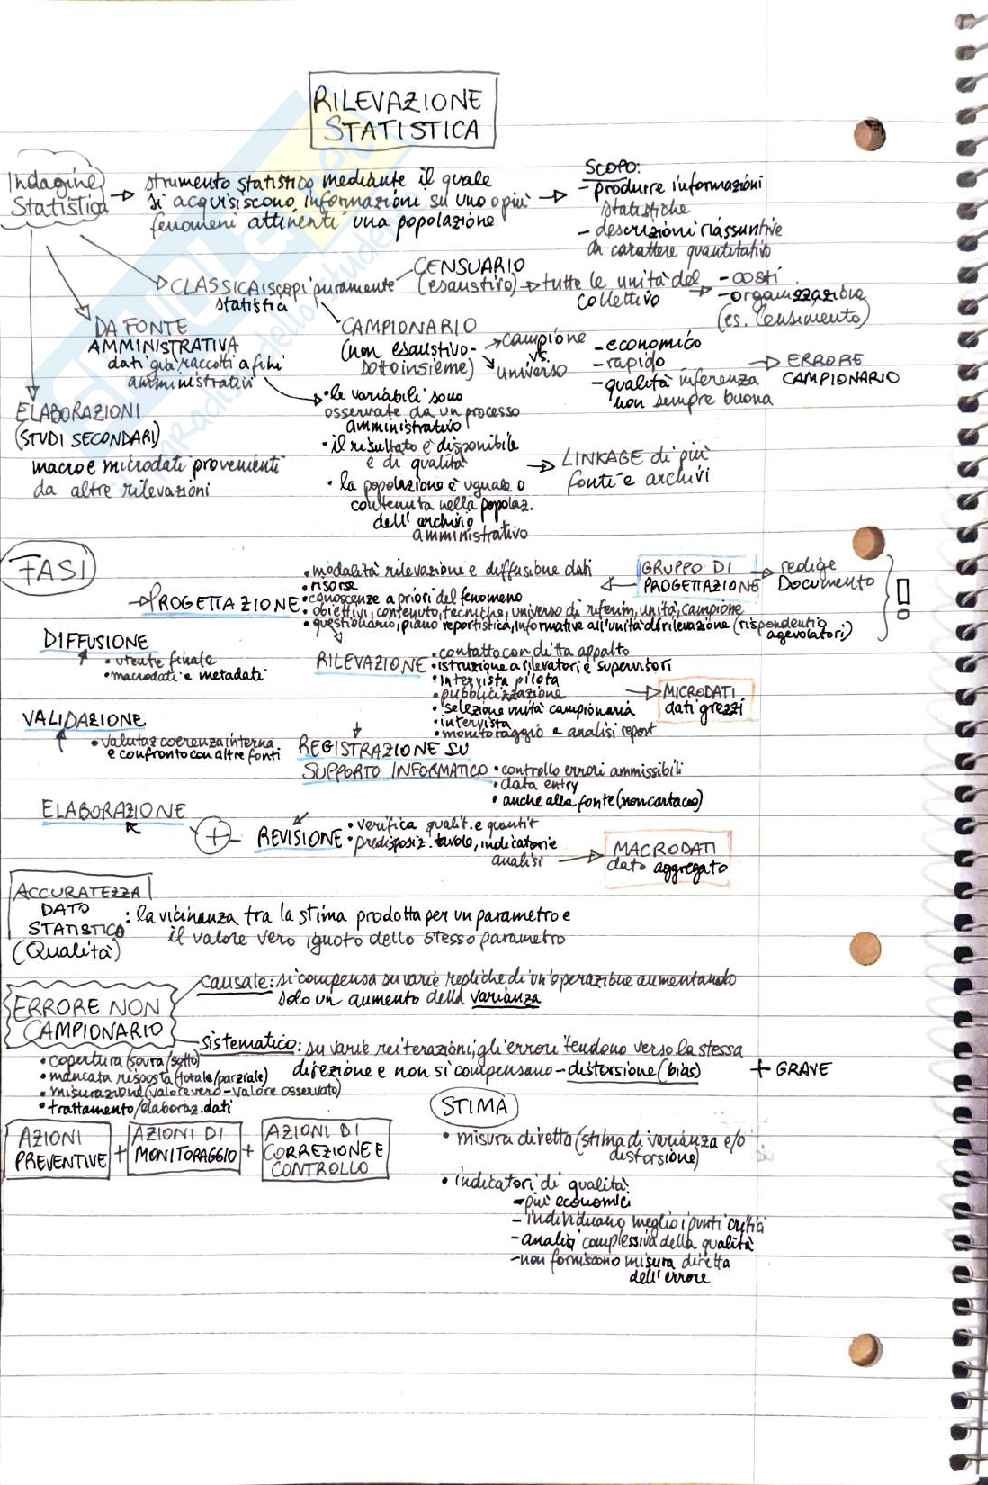 RILEVAZIONE
STATISTICA
Indagine
Statistica
strumento statistico mediante il quale
si acquisiscono informazioni su uno o più
fenomeni attinenti una popolazione
SCOPO:
- produrre informazioni
statistiche
- descrizioni riassuntive
di carattere quantitativo
CLASSICA: scopi puramente
statistica
CENSUARIO
(esaustivo)
tutte le unità del
collettivo
- costi
- organizzazione
(es. Censimento)
CAMPIONARIO
(non esaustivo-
sottoinsieme)
campione
vs
universo
- economico
- rapido
- qualità inferenza
non sempre buona
ERRORE
CAMPIONARIO
DA FONTE
AMMINISTRATIVA
dati già raccolti a fini
amministrativi
• le variabili sono
osservate da un processo
amministrativo
• il risultato è disponibile
e di qualità
• la popolazione è uguale o
contenuta nella popolaz.
dell'archivio
amministrativo
LINKAGE di più
fonti e archivi
ELABORAZIONI
(STUDI SECONDARI)
macro e microdati provenienti
da altre rilevazioni
FASI
PROGETTAZIONE
• modalità rilevazione e diffusione dati
• risorse
• conoscenze a priori del fenomeno
• obiettivi, contenuto, tecniche, universo di riferim, unità, campione
• questionario, piano reportistica, informative all'unità di rilevazione (rispondenti o
agevolatori)
GRUPPO DI
PROGETTAZIONE
redige
Documento
!
RILEVAZIONE
• contatto con ditta appalto
• istruzione a rilevatori e supervisori
• intervista pilota
• pubblicizzazione
• selezione unità campionaria
• intervista
• monitoraggio e analisi report
MICRODATI
dati grezzi
DIFFUSIONE
• utente finale
• macrodati e metadati
VALIDAZIONE
• valutaz coerenza interna
e confronto con altre fonti
REGISTRAZIONE SU
SUPPORTO INFORMATICO
• controllo errori ammissibili
• data entry
• anche alla fonte (non cartaceo)
ELABORAZIONE
+
REVISIONE
• verifica qualit. e quantit
• predisposiz. tavole, indicatori e
analisi
MACRODATI
dato aggregato
ACCURATEZZA
DATO
STATISTICO
(Qualità)
: la vicinanza tra la stima prodotta per un parametro e
il valore vero ignoto dello stesso parametro
ERRORE NON
CAMPIONARIO
causale: si compensa su varie repliche di un'operazione aumentando
solo un aumento della varianza
sistematico: su varie reiterazioni, gli errori tendono verso la stessa
direzione e non si compensano - distorsione (bias)
+ GRAVE
• copertura (sovra/sotto)
• mancata risposta (totale/parziale)
• misurazione (valore vero - valore osservato)
• trattamento/elaboraz. dati
AZIONI
PREVENTIVE
+
AZIONI DI
MONITORAGGIO
+
AZIONI DI
CORREZIONE E
CONTROLLO
STIMA
• misura diretta (stima di varianza e/o
distorsione)
• indicatori di qualità:
- più economici
- individuano meglio i punti critici
- analisi complessiva della qualità
- non forniscono misura diretta
dell'errore